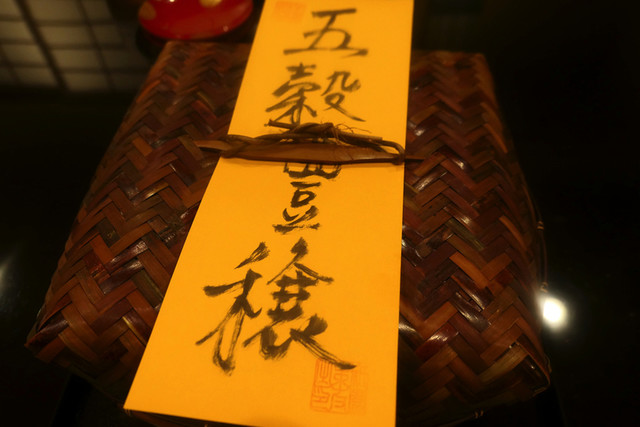 五穀豊穣